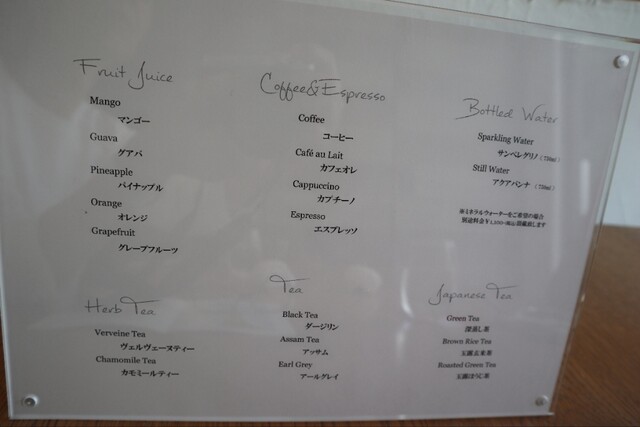 Fruit Juice
Mango
マンゴー
Guava
グアバ
Pineapple
パイナップル
Orange
オレンジ
Grapefruit
グレープフルーツ
Coffee&Espresso
Coffee
コーヒー
Café au Lait
カフェオレ
Cappuccino
カプチーノ
Espresso
エスプレッソ
Bottled Water
Sparkling Water
サンペレグリノ（750ml）
Still Water
アクアパンナ（750ml）
※ミネラルウォーターをご希望の場合
別途料金￥1,000+税頂戴致します
Herb Tea
Verveine Tea
ヴェルヴェーヌティー
Chamomile Tea
カモミールティー
Tea
Black Tea
ダージリン
Assam Tea
アッサム
Earl Grey
アールグレイ
Japanese Tea
Green Tea
深蒸し茶
Brown Rice Tea
玉露玄米茶
Roasted Green Tea
玉露ほうじ茶